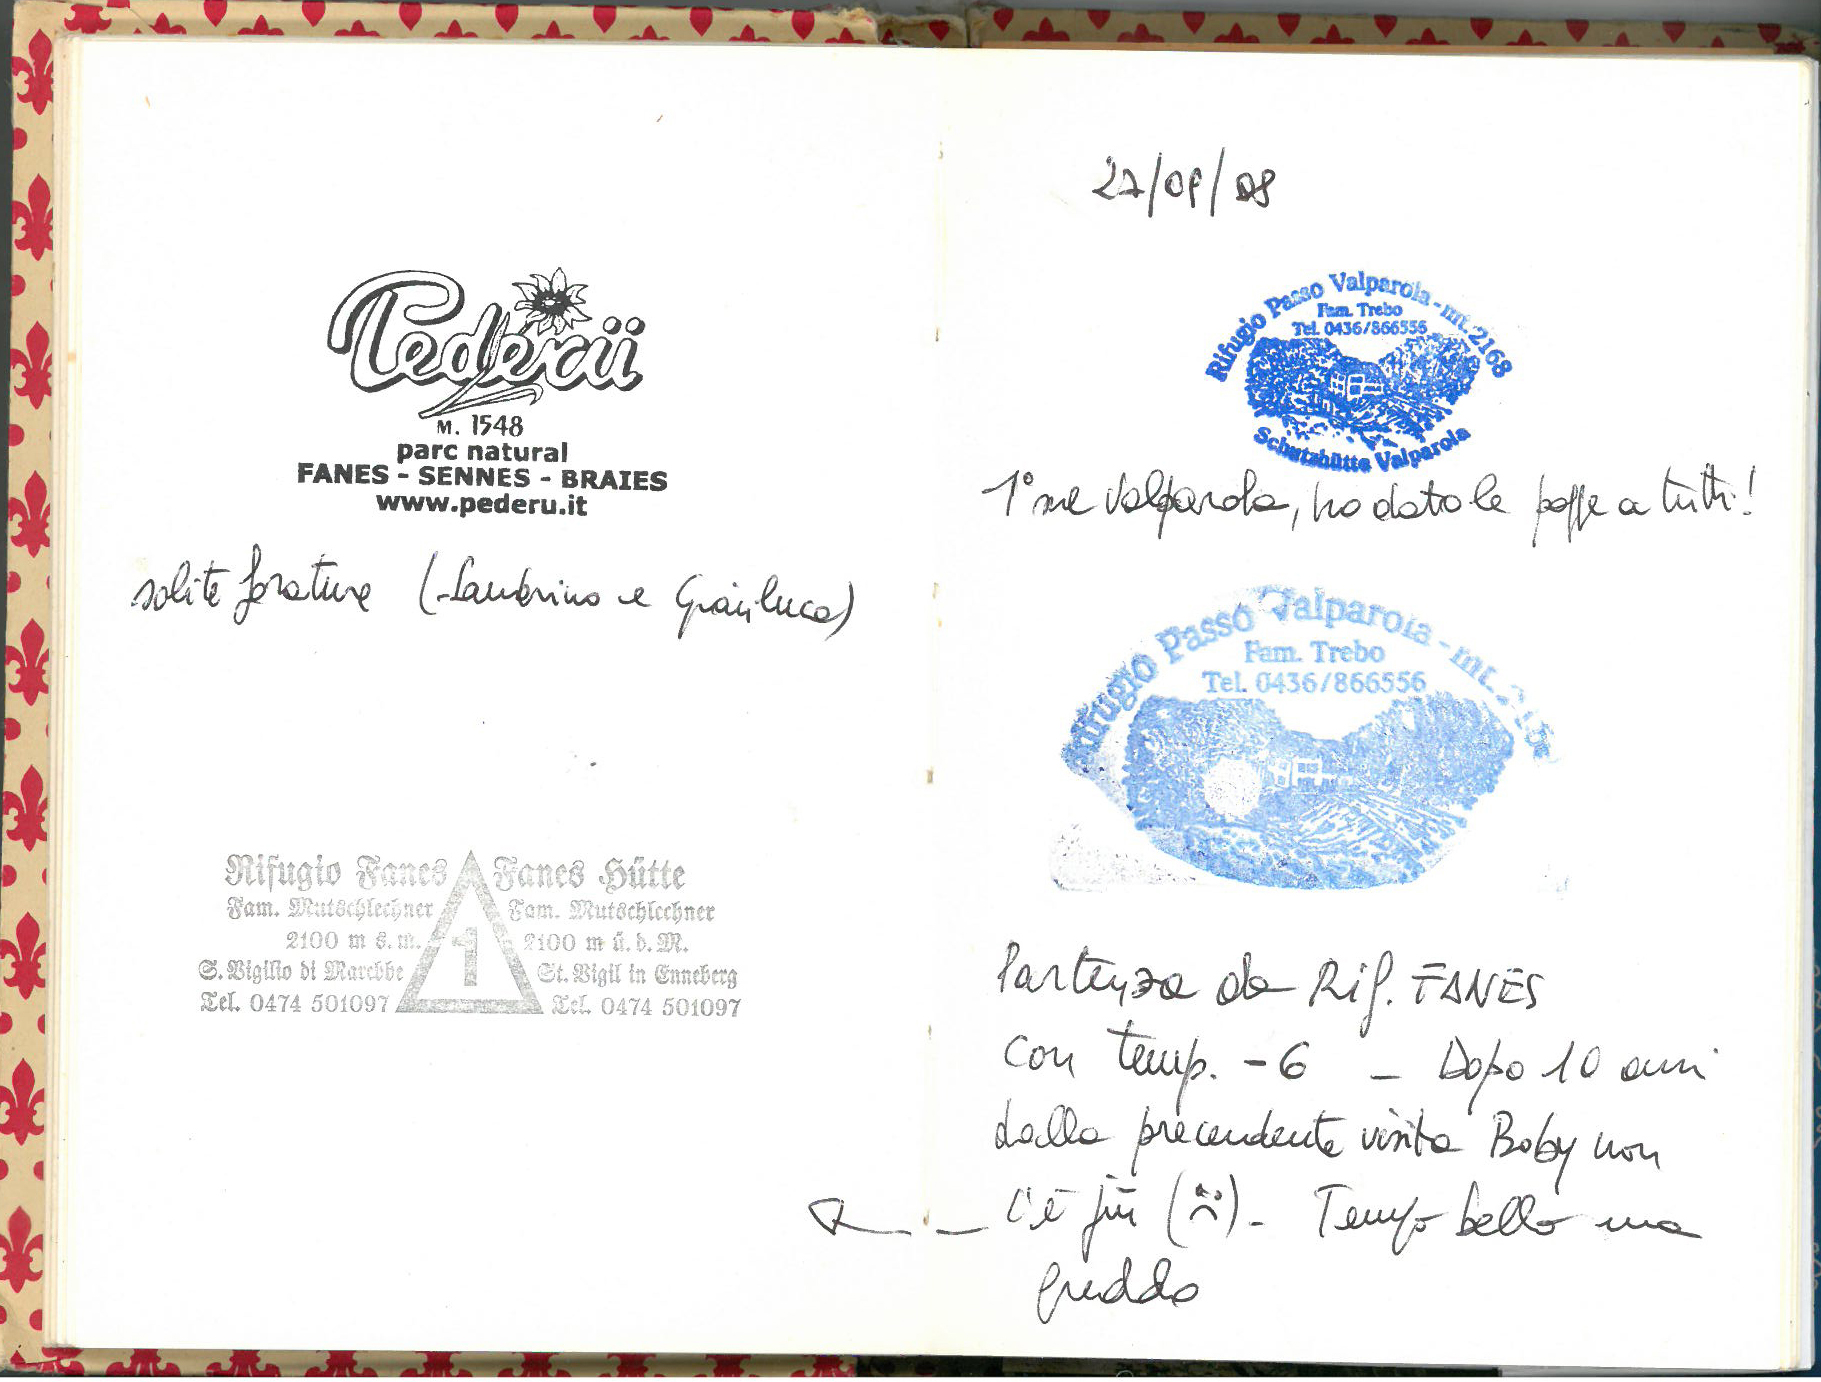 Pederü
M. 1548
parc natural
FANES - SENNES - BRAIES
www.pederu.it
solite forature (Sandrino e Gianluca)
Rifugio Fanes
Fam. Mutschlechner
2100 m s.m.
S. Vigilio di Marebbe
Tel. 0474 501097
1
Fanes Hütte
Fam. Mutschlechner
2100 m ü.d.M.
St. Vigil in Enneberg
Tel. 0474 501097
27/09/08
Rifugio Passo Valparola - mt. 2168
Fam. Trebo
Tel. 0436/866556
Schutzhütte Valparola
1° me Valparola, ho dato le paffe a tutti!
Rifugio Passo Valparola - mt.
Fam. Trebo
Tel. 0436/866556
Partenza da Rif. FANES
con temp. -6 - Dopo 10 anni
dalla precendente visita Boby non
c'è più ( ) - Tempo bello ma
freddo